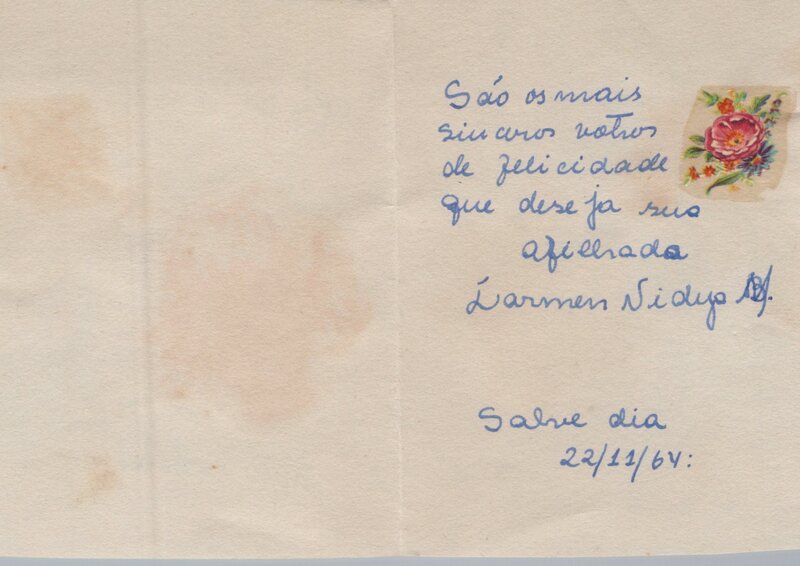 São os mais
sinceros votros
de felicidade
que deseja sua
afilhada
Carmen Nidya
Salve dia
22/11/64: